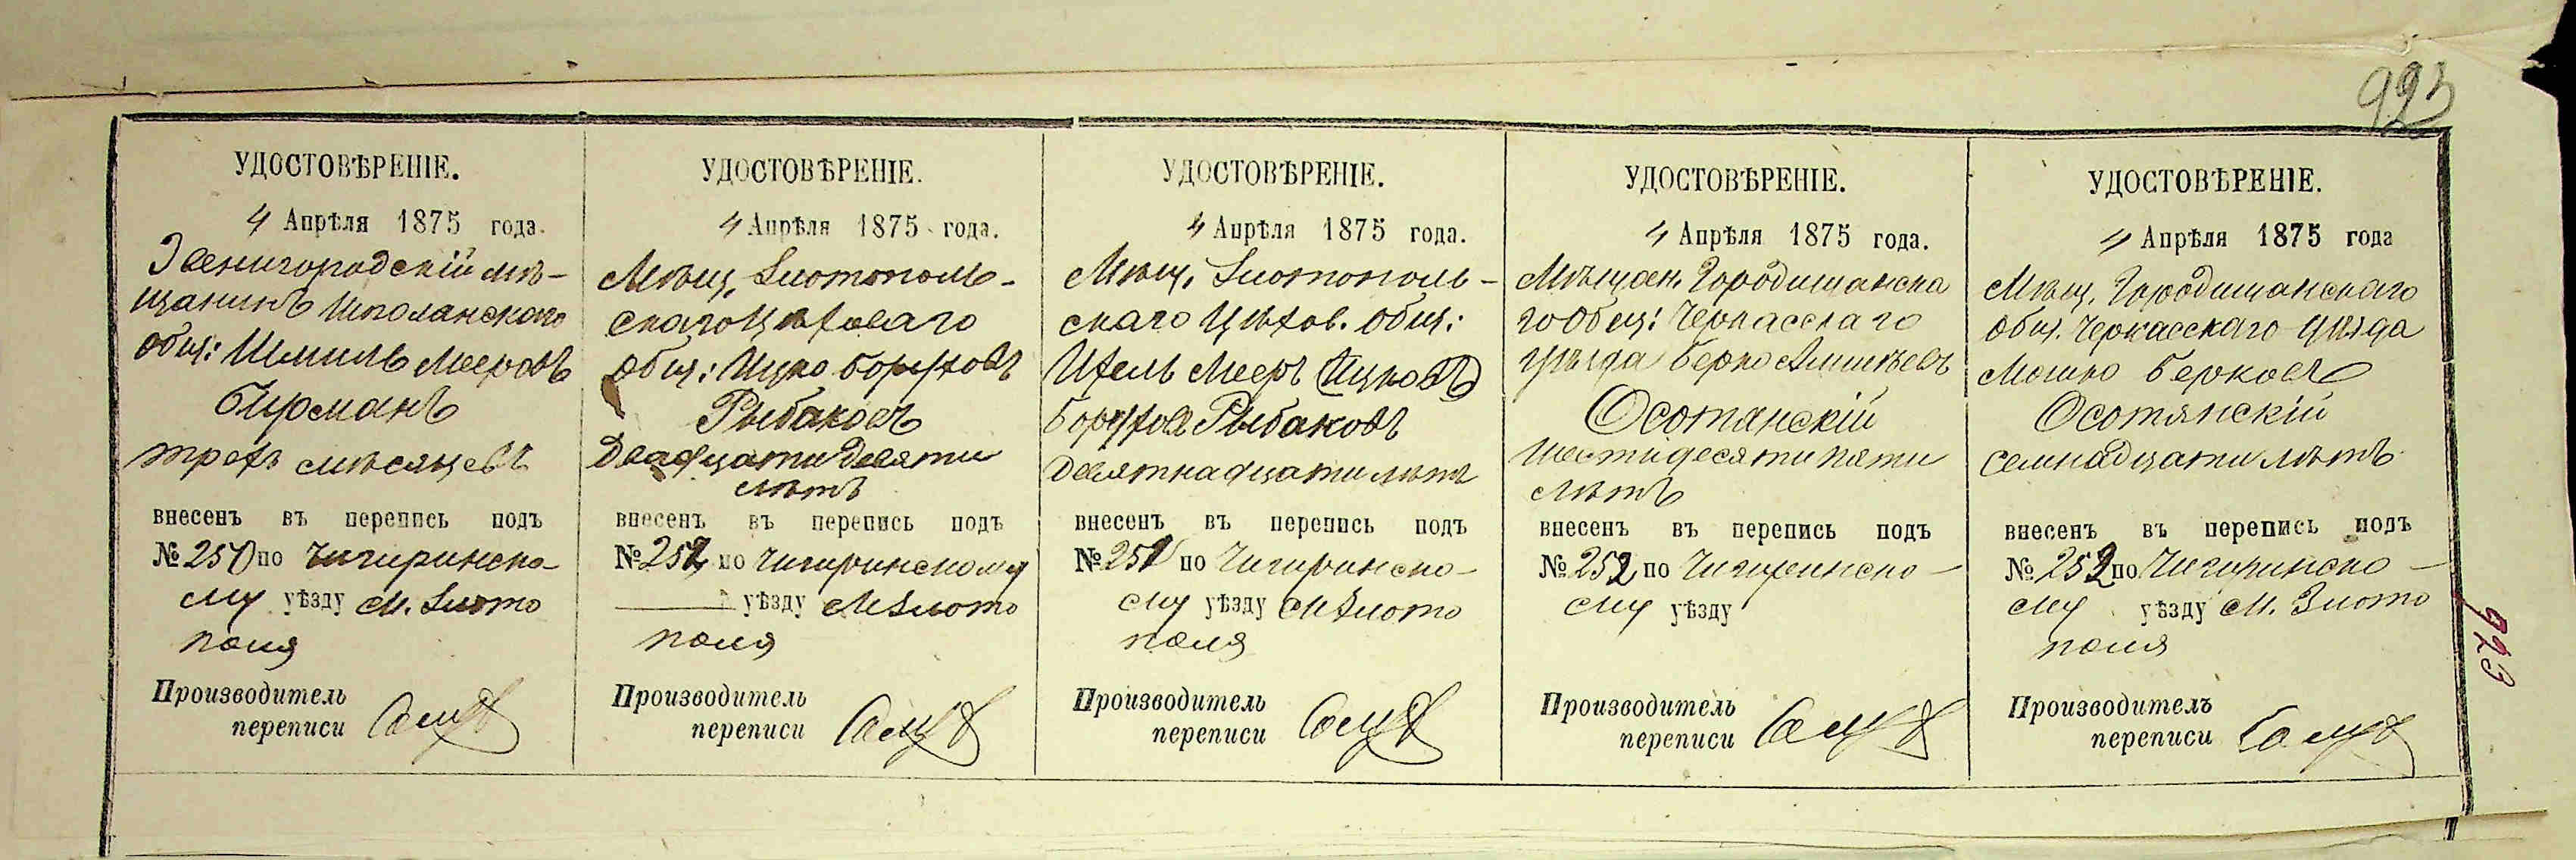 923
УДОСТОВѢРЕНІЕ.
4 Апрѣля 1875 года.
Звенигородскій мѣ-
щанинъ Шполанского
общ: Шмиль Мееровъ
Бирманъ
трехъ мѣсяцевъ
внесенъ въ перепись подъ
№ 250 по Чигиринско-
му уѣзду М. Злото
поля
Производитель
переписи
УДОСТОВѢРЕНІЕ.
4 Апрѣля 1875 года.
Мѣщ. Златополь-
скаго Цеховаго
общ: Ицко Боруховъ
Рыбаковъ
Двадцати девяти
лѣтъ
внесенъ въ перепись подъ
№ 251 по Чигиринскому
уѣзду М Злото
поля
Производитель
переписи
УДОСТОВѢРЕНІЕ.
4 Апрѣля 1875 года.
Мѣщ. Злотополь-
скаго Цѣхов. общ:
Ихель Мееръ (Ицковъ)
Боруховъ Рыбаковъ
Девятнадцати лѣтъ
внесенъ въ перепись подъ
№ 251 по Чигиринско-
му уѣзду М Злото
поля
Производитель
переписи
УДОСТОВѢРЕНІЕ.
4 Апрѣля 1875 года.
Мѣщан. Городищанска
го Общ: Черкасскаго
уѣзда Берко
Осотянскій
Шестидесяти пяти
лѣтъ
внесенъ въ перепись подъ
№ 252 по Чигиринско-
му уѣзду
Производитель
переписи
УДОСТОВѢРЕНІЕ.
4 Апрѣля 1875 года
Мѣщ. Городищанскаго
общ. Черкасскаго уѣзда
Мошко Берковъ
Осотянскій
Семнадцати лѣтъ
внесенъ въ перепись подъ
№ 252 по Чигиринско-
му уѣзду М. Злото
поля
Производитель
переписи
923